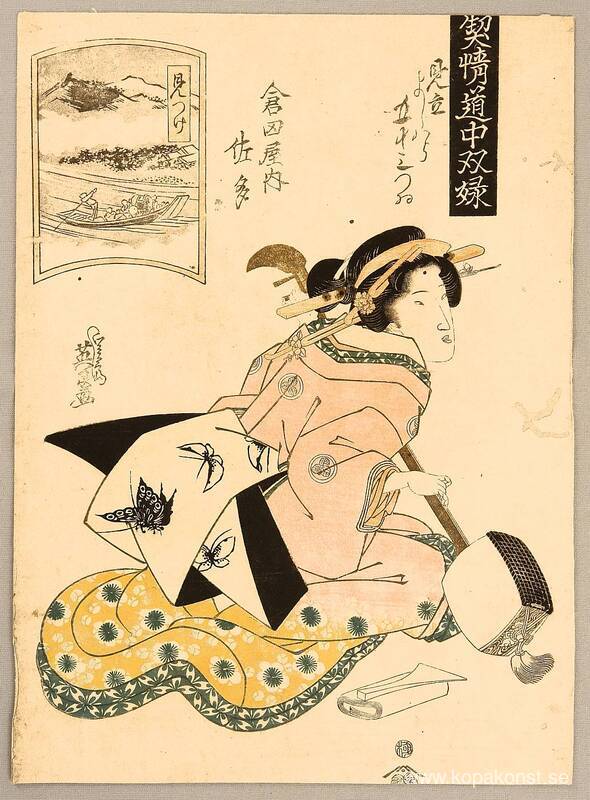 契情道中双娽
見立
よしはら
五十三つゐ
倉田屋内
佐多
見つけ
渓斎
英泉画
極
www.kopakonst.se